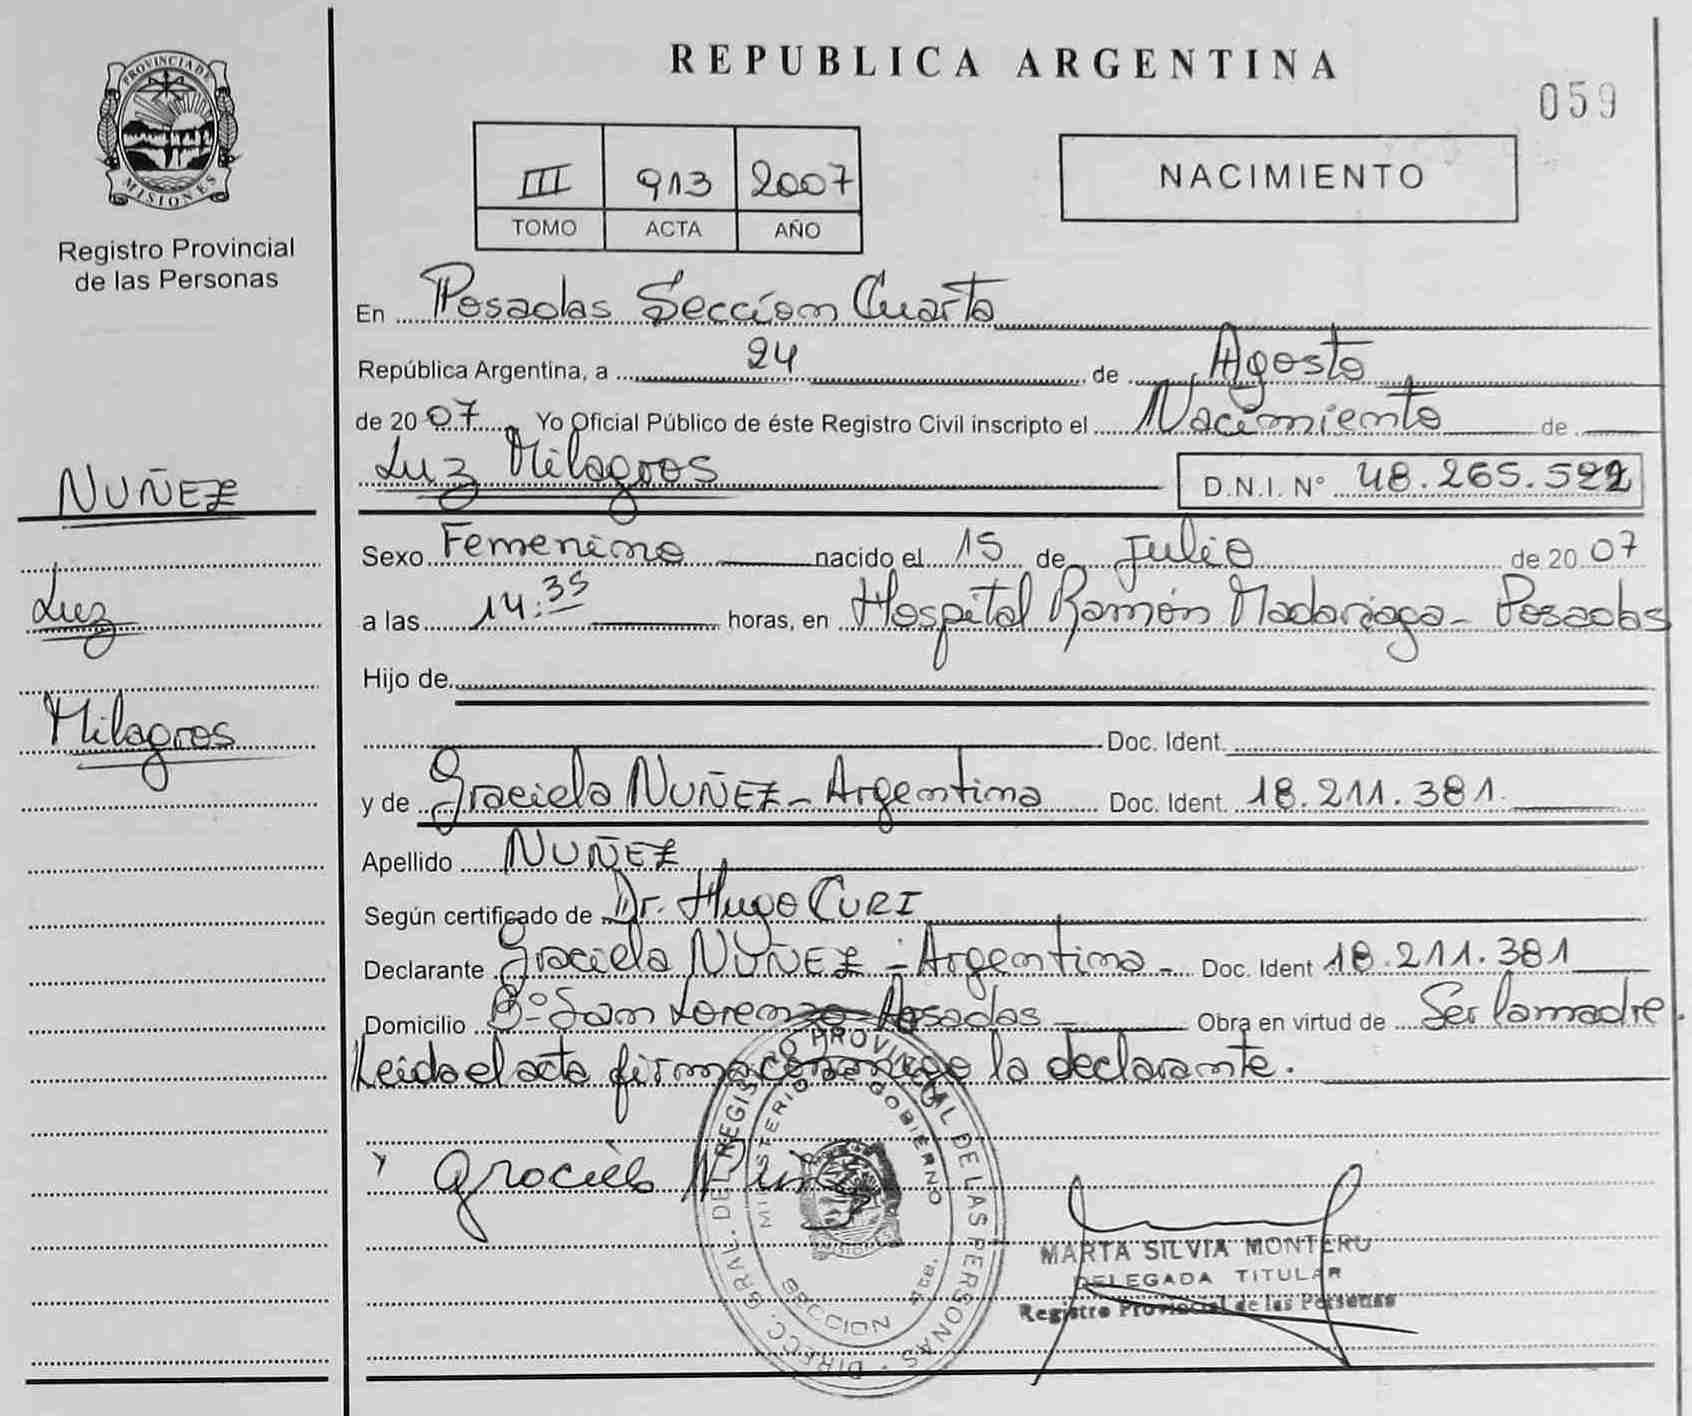 PROVINCIA DE
MISIONES
Registro Provincial
de las Personas
NUÑEZ
Luz
Milagros
REPUBLICA ARGENTINA
059
III 913 2007
TOMO ACTA AÑO
NACIMIENTO
En Posadas Sección Cuarta
República Argentina, a 24 de Agosto
de 2007 Yo Oficial Público de éste Registro Civil inscripto el Nacimiento de
Luz Milagros D.N.I. N° 48.265.522
Sexo Femenino nacido el 15 de Julio de 2007
a las 14:35 horas, en Hospital Ramón Madariaga - Posadas
Hijo de
Doc. Ident.
y de Graciela NUÑEZ - Argentina Doc. Ident. 18.211.381.
Apellido NUÑEZ
Según certificado de Dr. Hugo CURI
Declarante Graciela NUÑEZ - Argentina - Doc. Ident 18.211.381
Domicilio B° San Lorenzo - Posadas - Obra en virtud de Ser la madre.
Leida el acta firma conmigo la declarante.
Graciela Nuñez
DIRECC. GRAL. DEL REGISTRO PROVINCIAL DE LAS PERSONAS
MINISTERIO GOBIERNO
SECCION 4ta.
MARTA SILVIA MONTERO
DELEGADA TITULAR
Registro Provincial de las Personas